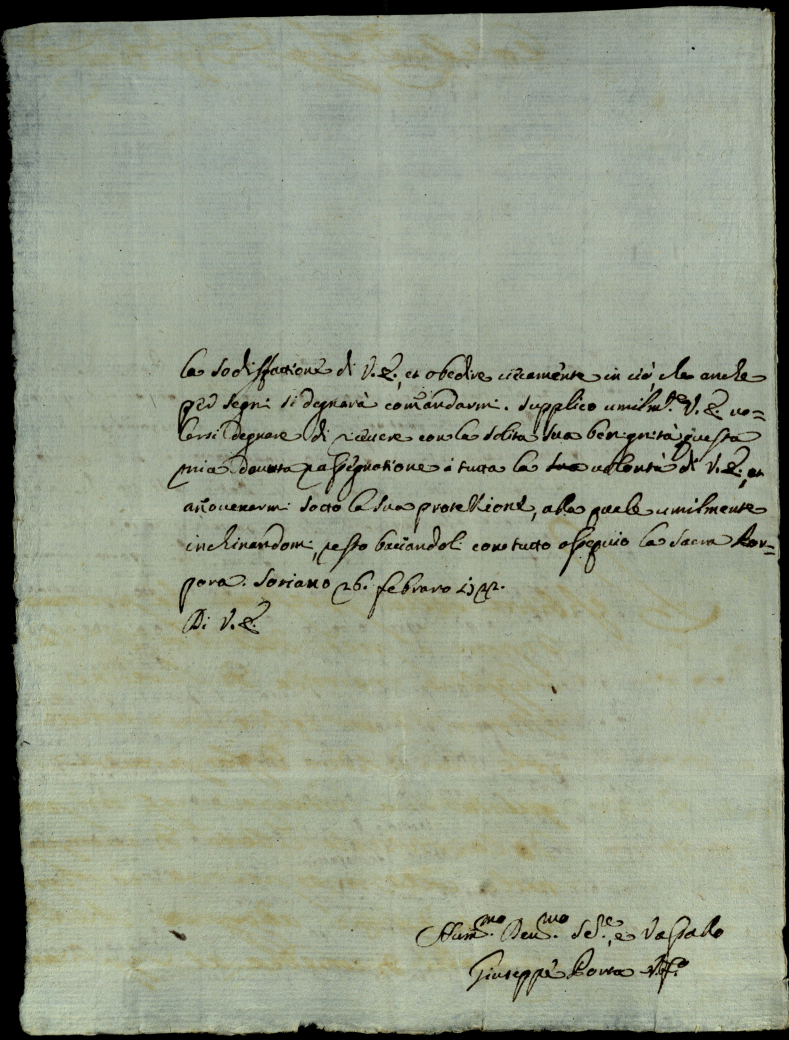 la sodisfattione di V.E., et obedire ciecamente in ciò, che anche
per segni si degnarà comandarmi. Supplico umilm.te V.E. vo=
lersi degnare di ricevere con la solita sua benignità questa
mia dovuta rassegnatione à tutta la sua volontà di V.E., et
añoverarmi sotto la sua protettione, alla quale umilmente
inchinandomi, resto baciandoli con tutto ossequio la sacra
pora. Soriano 26. febraro
Di V.E.
Hum.mo Dev.mo Se.re, e Vassallo
Giuseppe